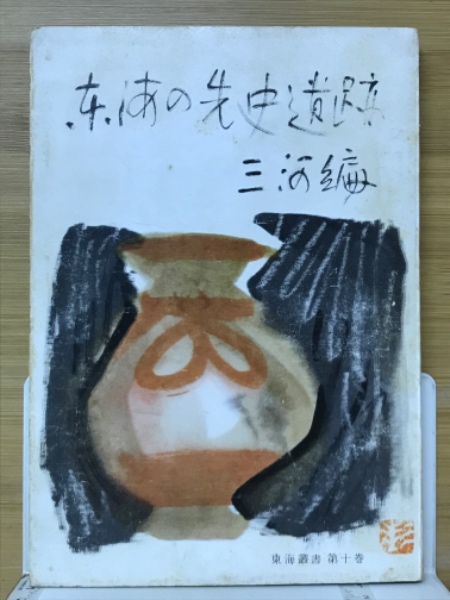 东海の先史遺跡
三河編
東海叢書 第十巻